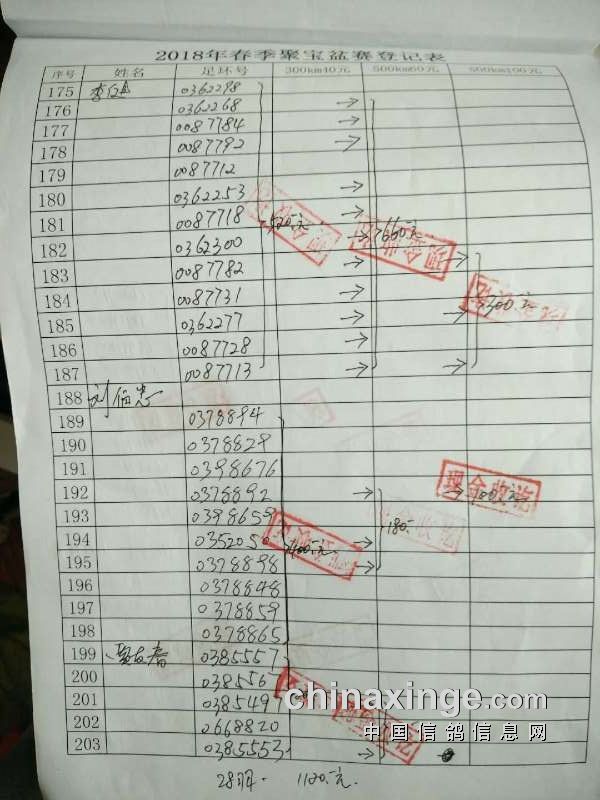 2018年春季聚宝盆赛登记表
序号 姓名 足环号 300km40元 500km60元 500km100元
175 0362298
176 0362268 →
177 0087784 →
178 0087792 →
179 0087712
180 0362253 →
181 0087718 → 520.元
182 0362300 → 660.元
183 0087782 → →
184 0087731 → 300.元
185 0362277 →
186 0087728 →
187 0087713 → →
188 刘
189 0378894
190 0378829
191 0398676
192 0378892 → → 100元
193 0398659 180.
194 035205 → 400.元
195 0378898 →
196 0378848
197 0378859
198 0378865
199 0385557
200 038556
201 038549
202 0668820
203 0385553 → →
现金收讫
现金收讫
chinaxinge.com
中国信鸽信息网
28羽. 1120.元.